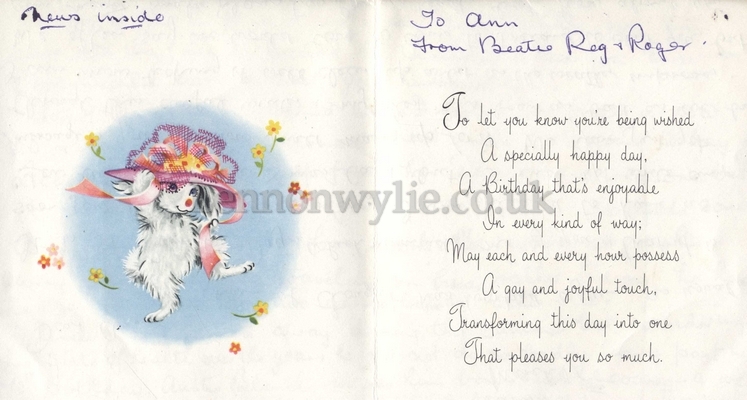 News inside
To Ann
From Beatie Reg + Roger.
To let you know you're being wished
A specially happy day,
A Birthday that's enjoyable
In every kind of way;
May each and every hour possess
A gay and joyful touch,
Transforming this day into one
That pleases you so much.
nnonwylie.co.uk